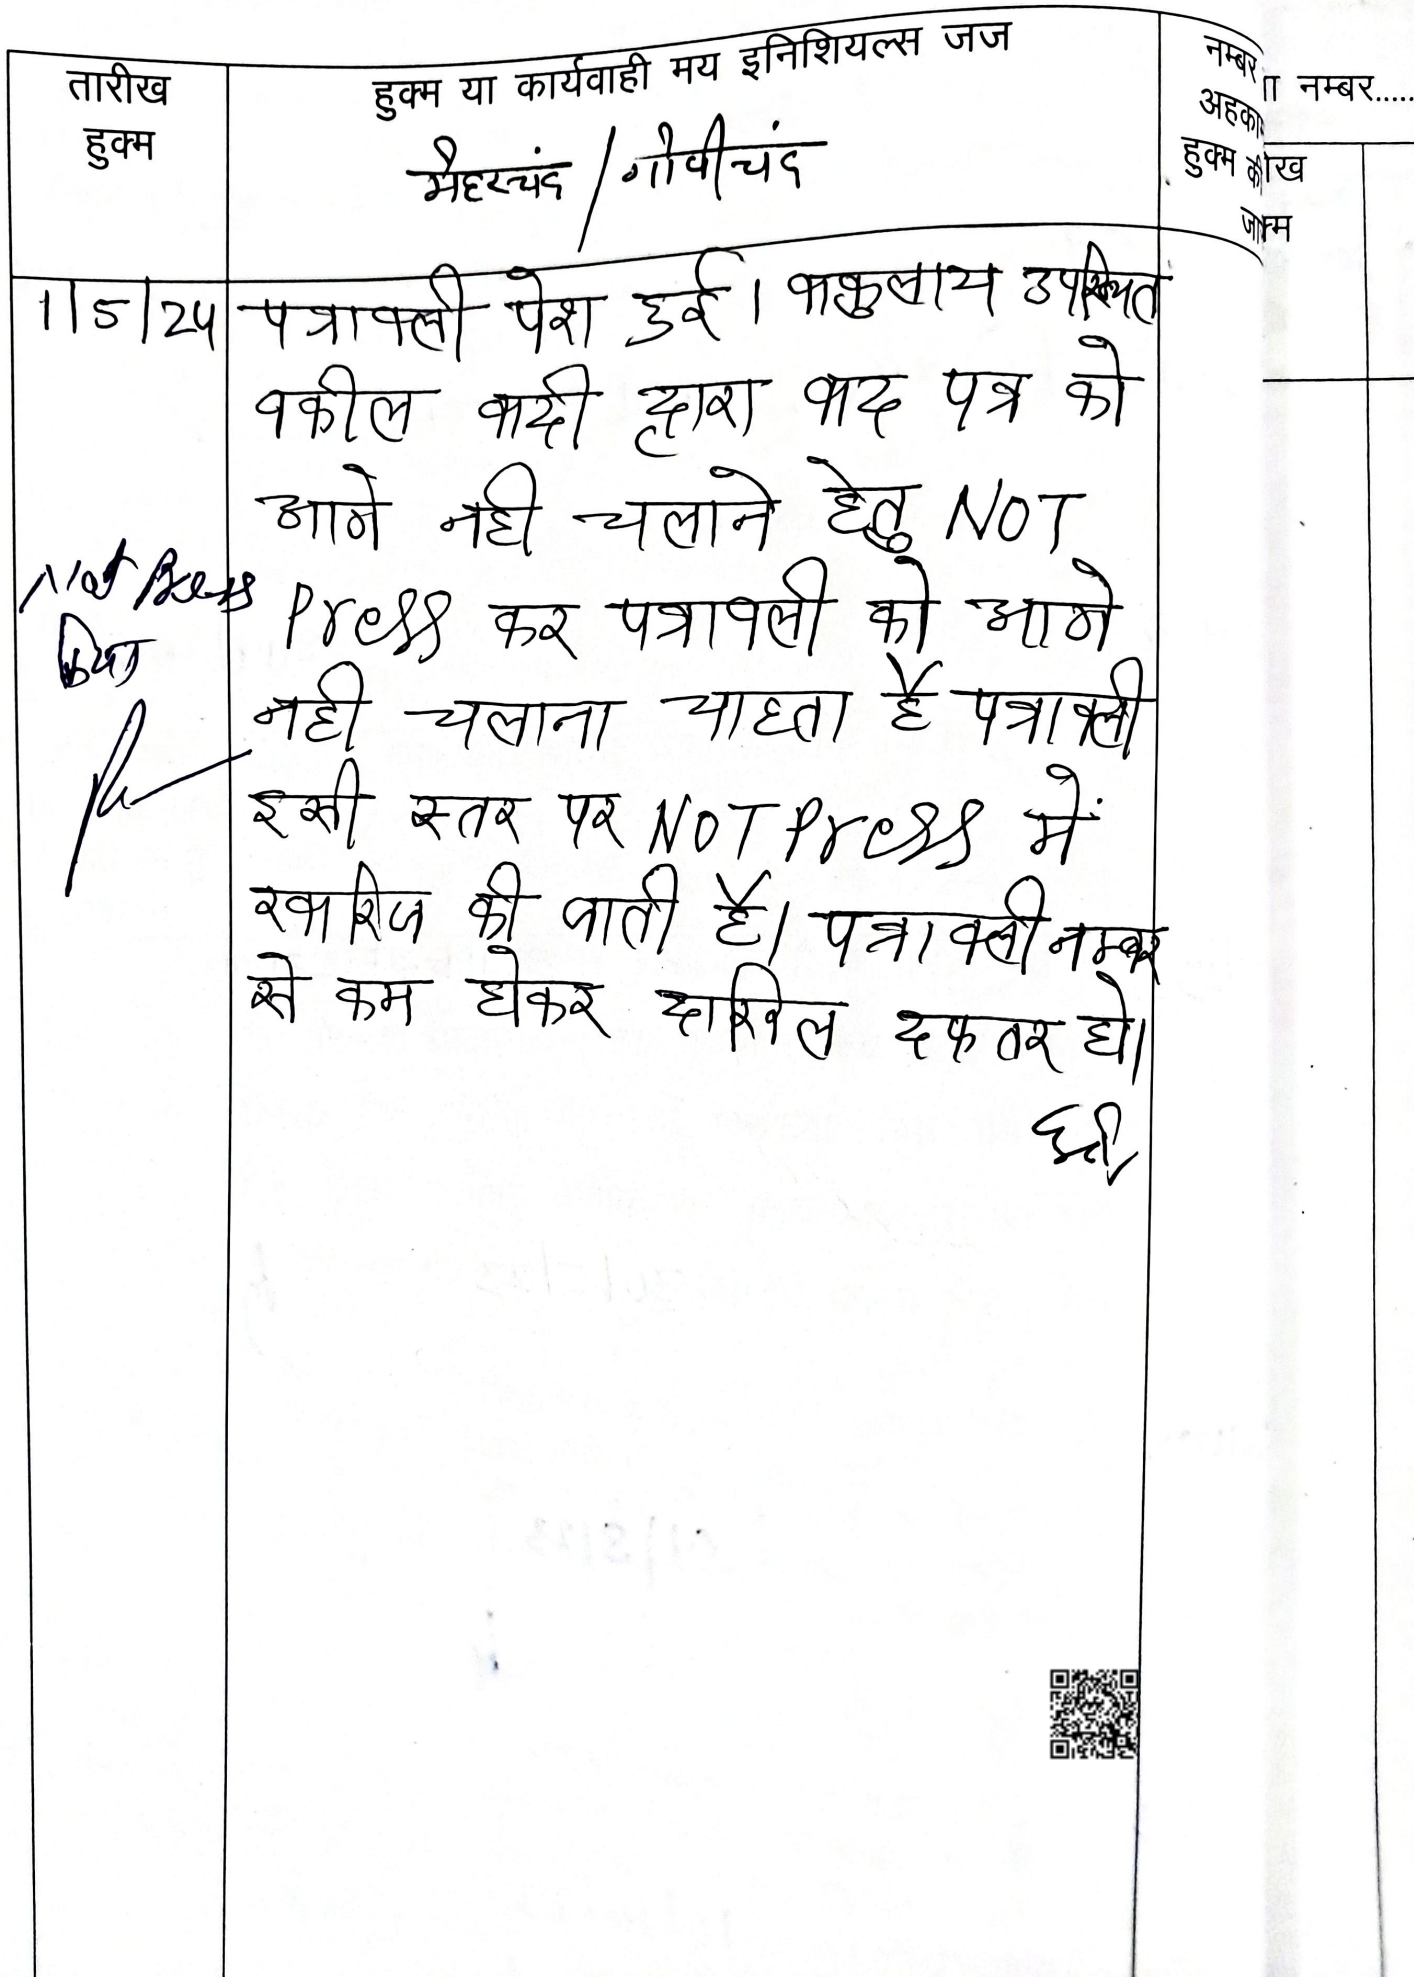 तारीख
हुक्म
हुक्म या कार्यवाही मय इनिशियल्स जज
मेहरचंद / गोपीचंद
नम्बर
अहका
हुक्म की
जा
ा नम्बर.....
ीख
क्म
1/5/24
पत्रावली पेश हुई। वकुलाय उपस्थित
वकील वादी द्वारा वाद पत्र को
आगे नही चलाने हेतु NOT
Press कर पत्रावली को आगे
नही चलाना चाहता है पत्रावली
इसी स्तर पर NOT Press में
खारिज की जाती है। पत्रावली नम्बर
से कम होकर दाखिल दफतर हो।
Not Press
किया